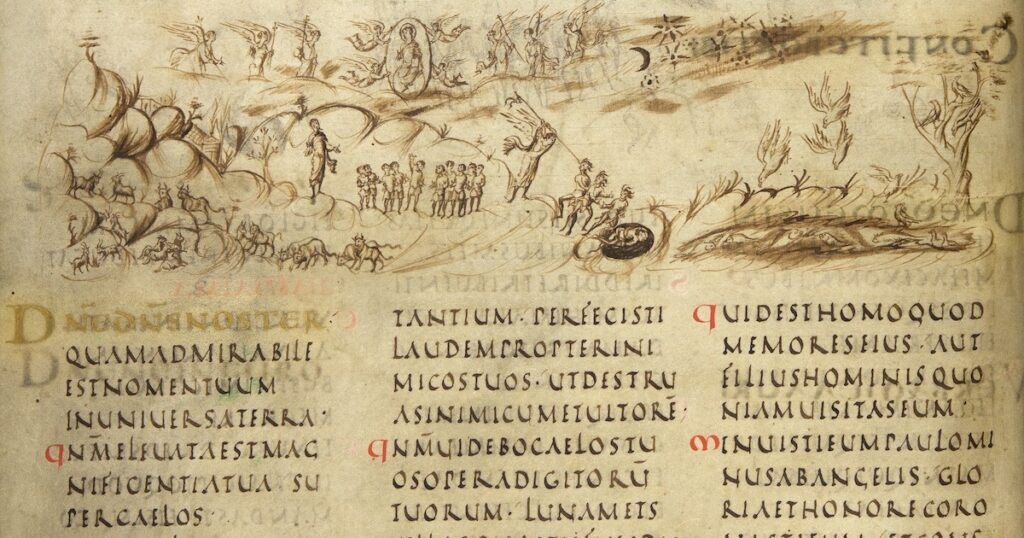 DN̄EDN̄ENOSTER
QUAMADMIRABILE
ESTNOMENTUUM
INUNIUERSATERRA·
QNM̄ELEUATAESTMAG
NIFICENTIATUA SU
PERCAELOS·
TANTIUM· PERFECISTI
LAUDEMPROPTERINI
MICOSTUOS· UTDESTRU
ASINIMICUMETULTORĒ·
QNM̄UIDEBOCAELOSTU
OSOPERADIGITORŪ
TUORUM· LUNAMETS
QUIDESTHOMOQUOD
MEMORESEIUS· AUT
FILIUSHOMINISQUO
NIAMUISITASEUM·
MINUISTIEUMPAULOMI
NUSABANGELIS· GLO
RIAETHONORECORO